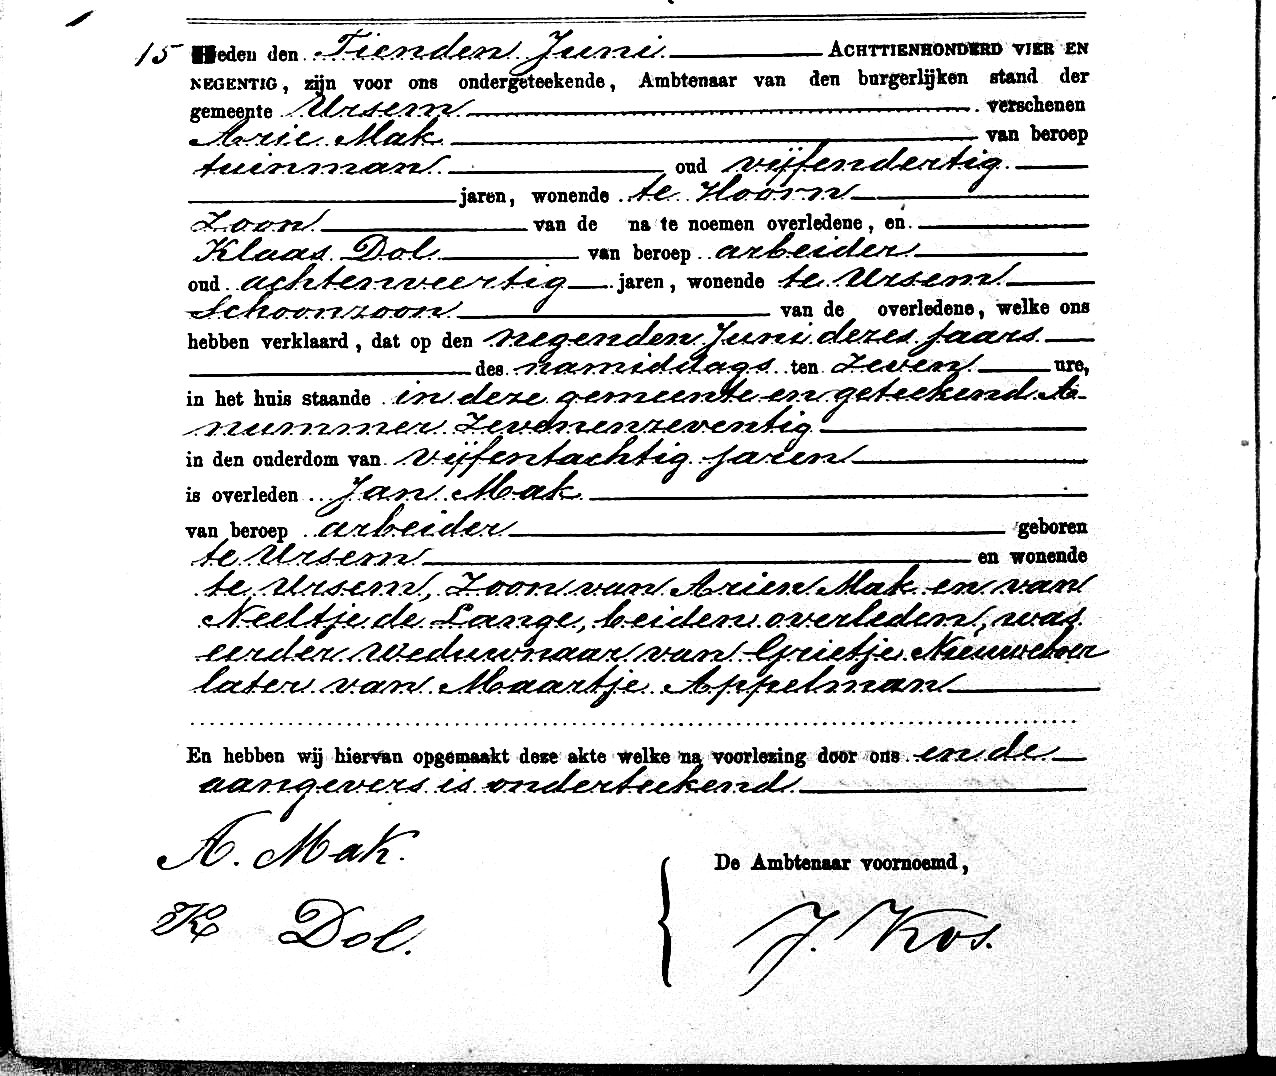 15 Heden den Tienden Juni ACHTTIENHONDERD VIER EN
NEGENTIG, zijn voor ons ondergeteekende, Ambtenaar van den burgerlijken stand der
gemeente Ursem verschenen
Arie Mak van beroep
tuinman oud vijfendertig
jaren, wonende te Hoorn
Zoon van de na te noemen overledene, en
Klaas Dol van beroep arbeider
oud achtenveertig jaren, wonende te Ursem
Schoonzoon van de overledene, welke ons
hebben verklaard, dat op den negenden Juni dezes jaars
des namiddags ten zeven ure,
in het huis staande in deze gemeente en geteekend A
nummer Zevenenzeventig
in den ouderdom van vijfentachtig jaren
is overleden Jan Mak
van beroep arbeider geboren
te Ursem en wonende
te Ursem, Zoon van Arien Mak en van
Neeltje de Lange, beiden overleden, was
eerder weduwnaar van Grietje Nieuweboer
later van Maartje Appelman
En hebben wij hiervan opgemaakt deze akte welke na voorlezing door ons en de
aangevers is onderteekend
A. Mak.
K Dol.
De Ambtenaar voornoemd,
J. Kos.